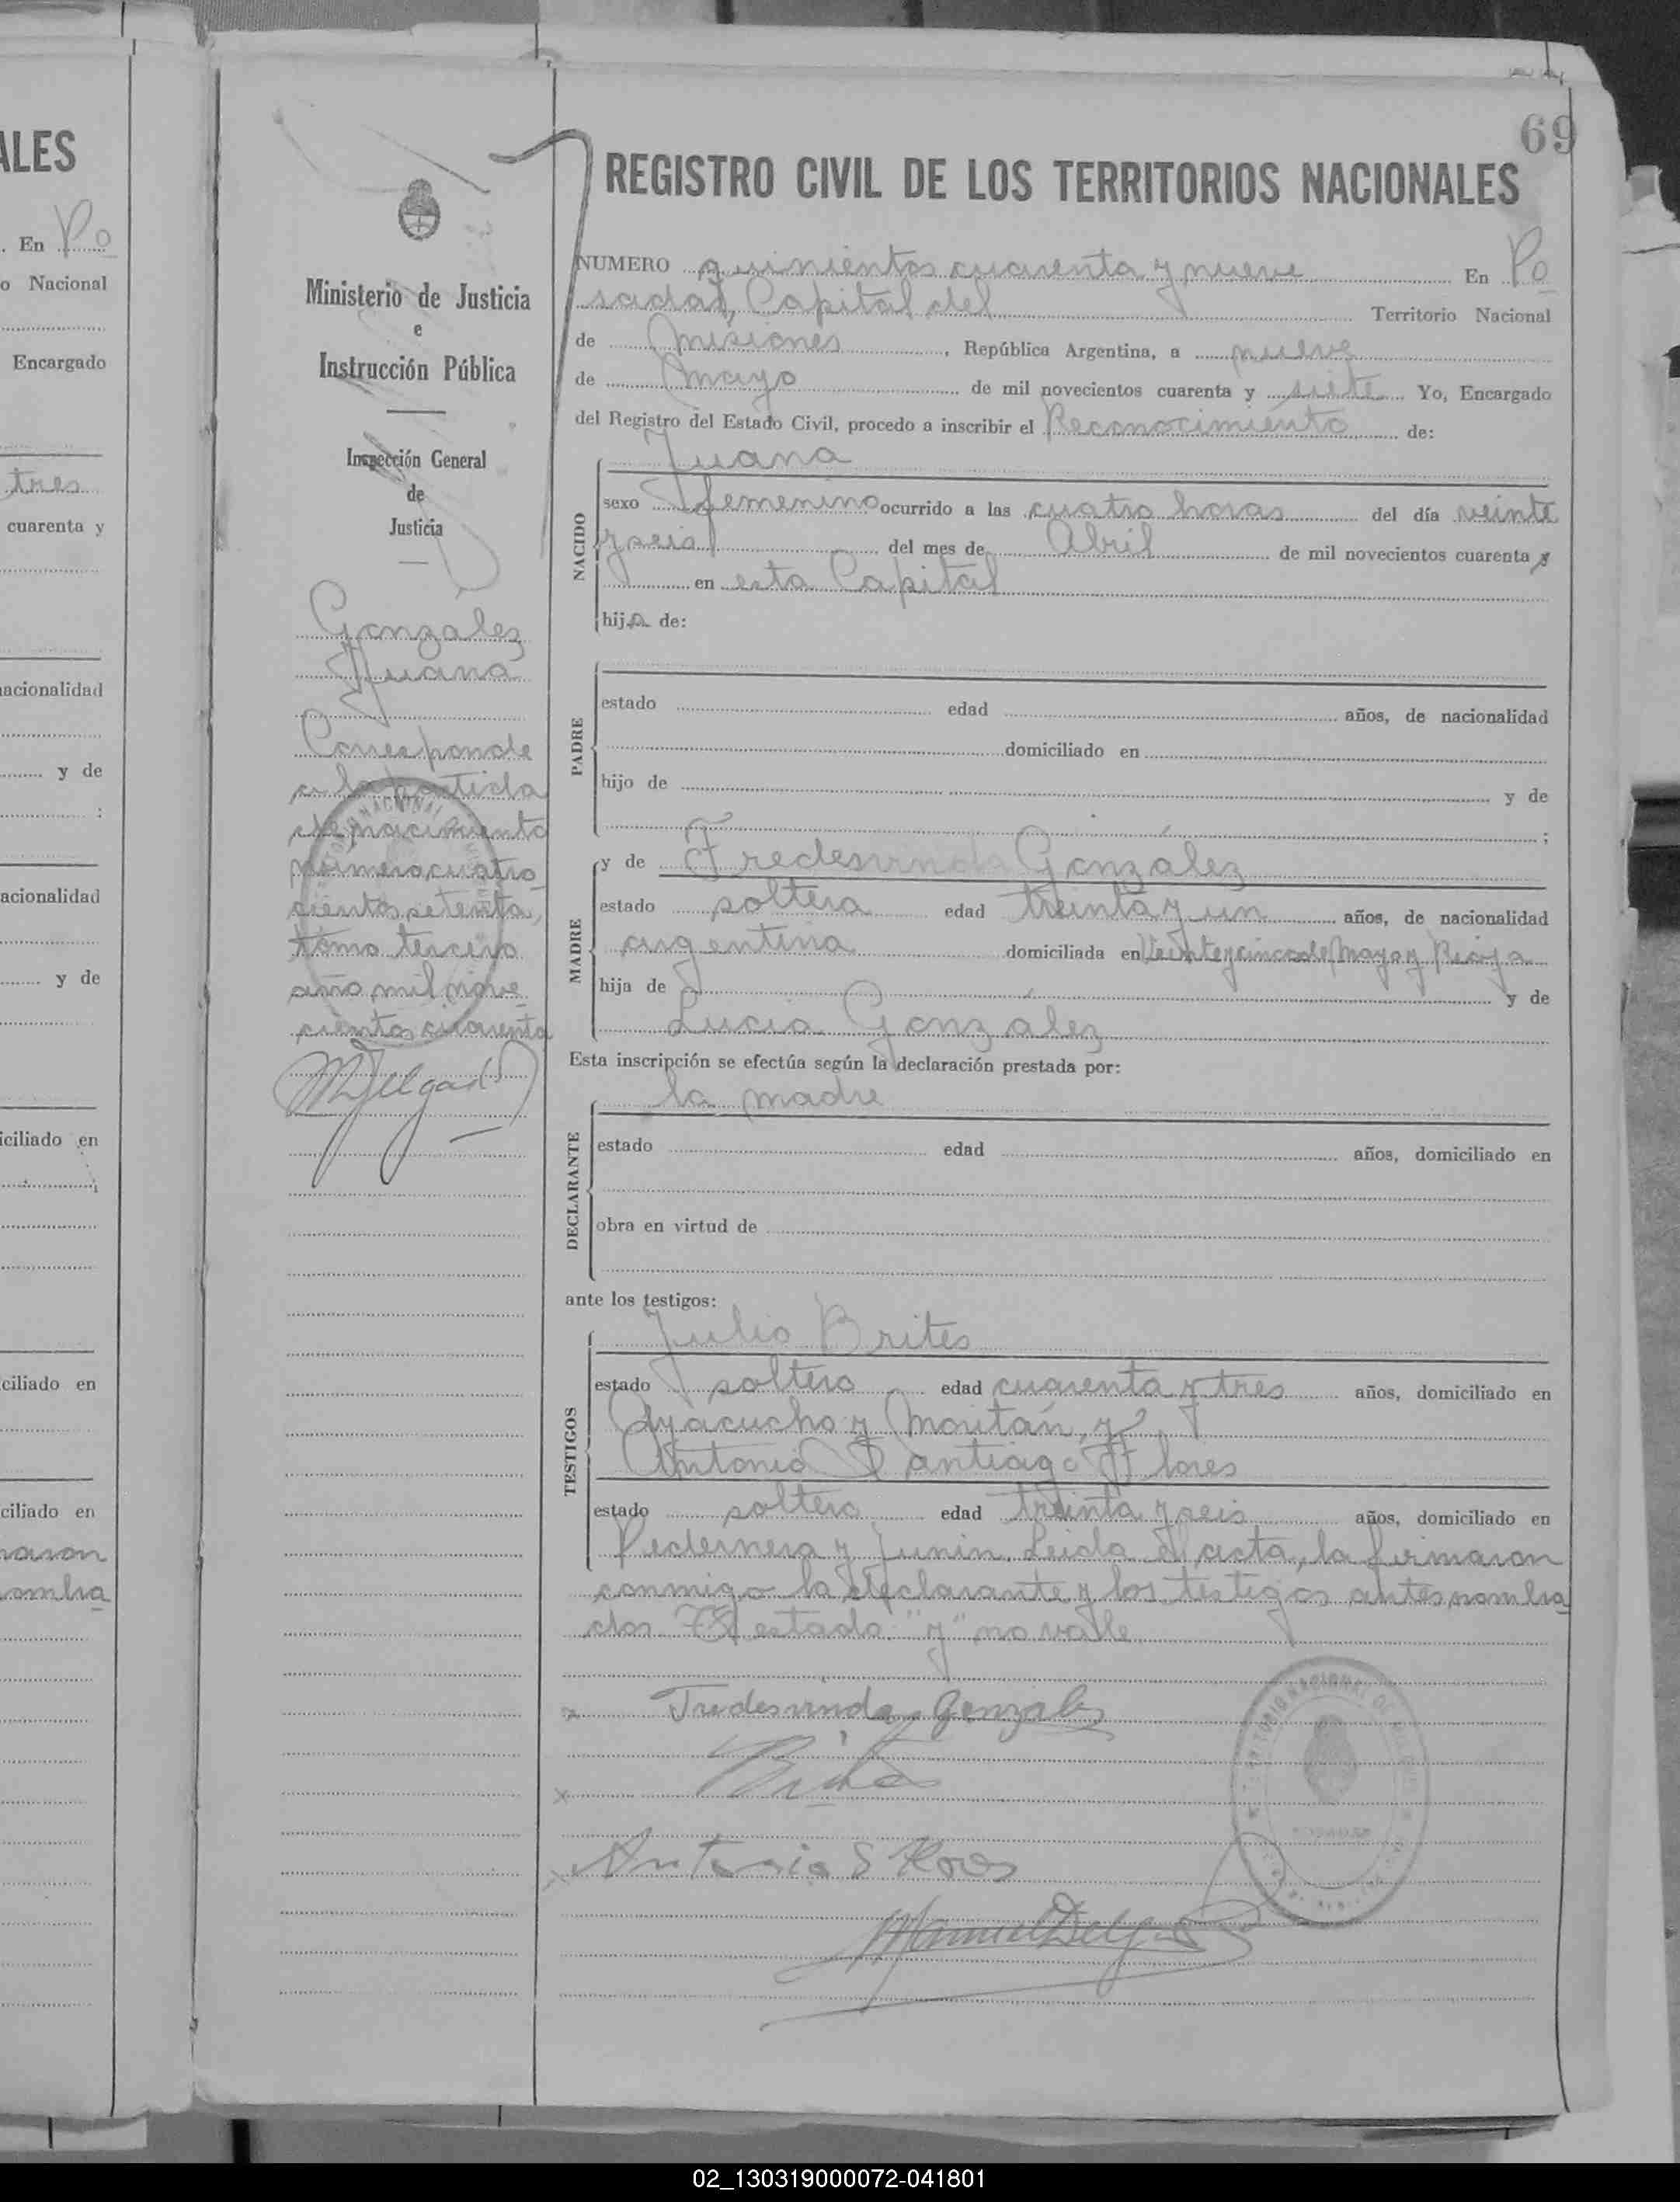 ALES
. En Po
o Nacional
Encargado
tres
cuarenta y
nacionalidad
y de
;
acionalidad
y de
iciliado en
ciliado en
ciliado en
maron
nombra
69
REGISTRO CIVIL DE LOS TERRITORIOS NACIONALES
Ministerio de Justicia
e
Instrucción Pública
Inspección General
de
Justicia
González
Juana
Corresponde
a la partida
de nacimiento
número cuatro
cientos setenta,
tomo tercero
año mil nove
cientos cuarenta
MDelgado
NUMERO quinientos cuarenta y nueve En Po
sadas, Capital del Territorio Nacional
de Misiones, República Argentina, a nueve
de Mayo de mil novecientos cuarenta y siete Yo, Encargado
del Registro del Estado Civil, procedo a inscribir el Reconocimiento de:
NACIDO
Juana
sexo femenino ocurrido a las cuatro horas del día veinte
y seis del mes de Abril de mil novecientos cuarenta y
en esta Capital
hija de:
PADRE
estado edad años, de nacionalidad
domiciliado en
hijo de y de
;
MADRE
y de Fredesvinda González
estado soltera edad treinta y un años, de nacionalidad
argentina domiciliada en Veinte y cinco de Mayo y Rioja
hija de y de
Lucia González
Esta inscripción se efectúa según la declaración prestada por:
DECLARANTE
la madre
estado edad años, domiciliado en
obra en virtud de
ante los testigos:
TESTIGOS
Julio Brites
estado soltero edad cuarenta y tres años, domiciliado en
Ayacucho y Moritán, y
Antonio Santiago Flores
estado soltero edad treinta y seis años, domiciliado en
Pedernera y Junin. Leida el acta, la firmaron
conmigo la declarante y los testigos antes nombra
dos. El testado: "y" no valle
x Fredesvinda Gonzalez
x Brites
x Antonio S Flores
Manuel Delgado
02_130319000072-041801